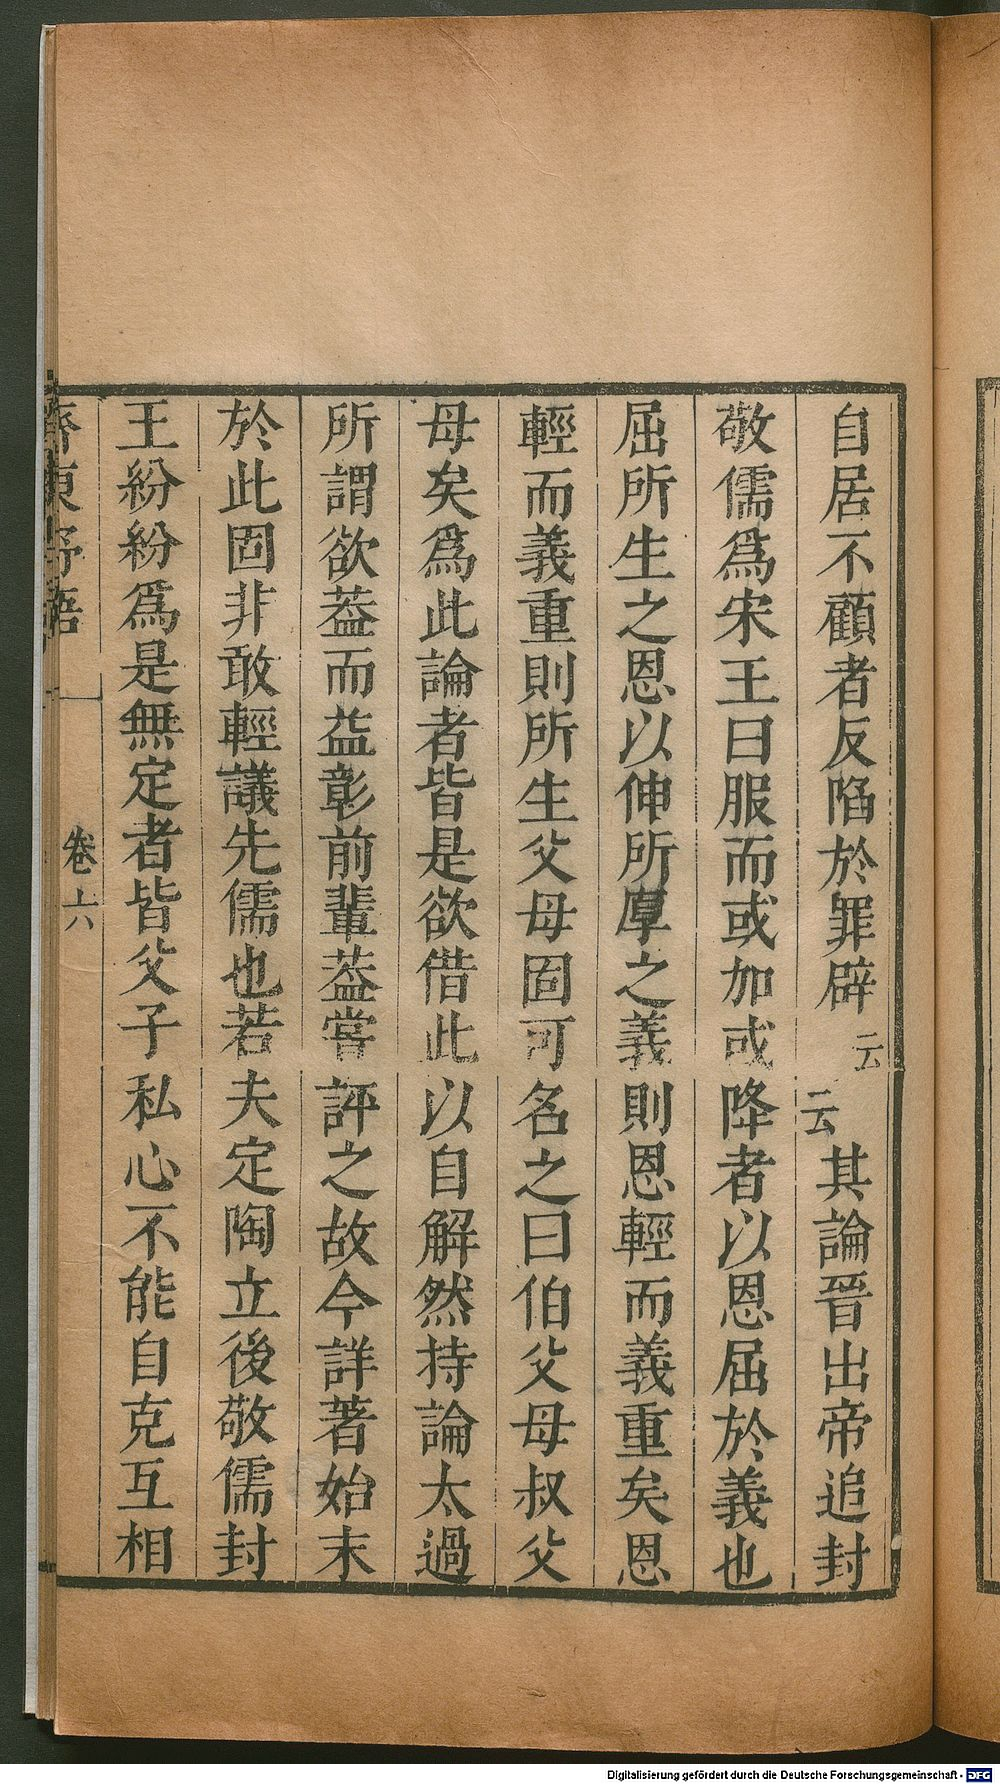 自居不顧者反陷於罪辟云云其論晉出帝追封
敬儒爲宋王曰服而或加或降者以恩屈於義也
屈所生之恩以伸所厚之義則恩輕而義重矣恩
輕而義重則所生父母固可名之曰伯父母叔父
母矣爲此論者皆是欲借此以自解然持論太過
所謂欲葢而益彰前輩葢嘗評之故今詳著始末
於此固非敢輕議先儒也若夫定陶立後敬儒封
王紛紛爲是無定者皆父子私心不能自克互相
齊東野語 卷六
Digitalisierung gefördert durch die Deutsche Forschungsgemeinschaft - DFG